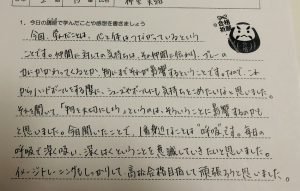 1. 今日の講演で学んだことや感想を書きましょう
合格
祈願
今回、学んだことは、心と体はつながっているという
ことです。仲間に対しての気持ちは、その仲間に伝わり、プレー
にかかわってくるなど何にでもそれが影響するということです。なので、これ
からハンドボールをする際に、シューズやボールにも気持ちをこめたいなと思いました。
それを聞いて、「物を大切にしろ」というのは、そういうことに影響するのかな
と思いました。今日聞いたことで、1番驚いたことは"呼吸"です。毎日の
呼吸で浅く吸い、深くはくということを意識していきたいと思いました。
イメージトレーニングもしっかりして高校合格目指して頑張ろうと思いました。